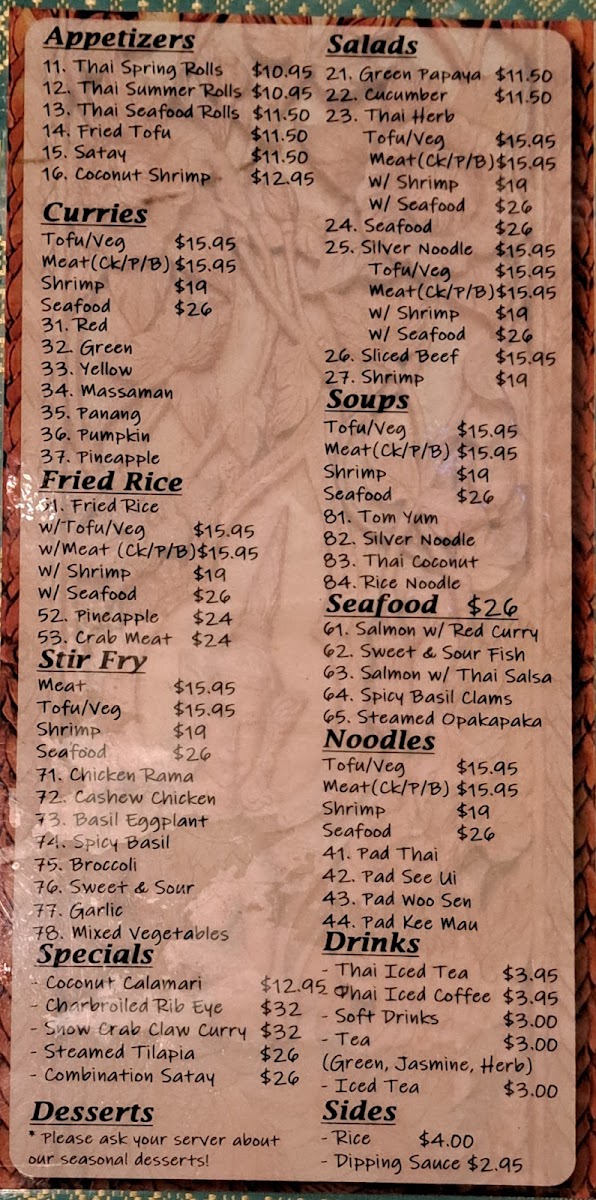 Appetizers
11. Thai Spring Rolls $10.95
12. Thai Summer Rolls $10.95
13. Thai Seafood Rolls $11.50
14. Fried Tofu $11.50
15. Satay $11.50
16. Coconut Shrimp $12.95
Curries
Tofu/Veg $15.95
Meat(Ck/P/B) $15.95
Shrimp $19
Seafood $26
31. Red
32. Green
33. Yellow
34. Massaman
35. Panang
36. Pumpkin
37. Pineapple
Fried Rice
51. Fried Rice
w/Tofu/Veg $15.95
w/Meat (Ck/P/B)$15.95
w/ Shrimp $19
w/ Seafood $26
52. Pineapple $24
53. Crab Meat $24
Stir Fry
Meat $15.95
Tofu/Veg $15.95
Shrimp $19
Seafood $26
71. Chicken Rama
72. Cashew Chicken
73. Basil Eggplant
74. Spicy Basil
75. Broccoli
76. Sweet & Sour
77. Garlic
78. Mixed Vegetables
Specials
- Coconut Calamari $12.95
- Charbroiled Rib Eye $32
- Snow Crab Claw Curry $32
- Steamed Tilapia $26
- Combination Satay $26
Desserts
* Please ask your server about
our seasonal desserts!
Salads
21. Green Papaya $11.50
22. Cucumber $11.50
23. Thai Herb
Tofu/Veg $15.95
Meat(Ck/P/B)$15.95
w/ Shrimp $19
w/ Seafood $26
24. Seafood $26
25. Silver Noodle $15.95
Tofu/Veg $15.95
Meat(Ck/P/B)$15.95
w/ Shrimp $19
w/ Seafood $26
26. Sliced Beef $15.95
27. Shrimp $19
Soups
Tofu/Veg $15.95
Meat(Ck/P/B) $15.95
Shrimp $19
Seafood $26
81. Tom Yum
82. Silver Noodle
83. Thai Coconut
84. Rice Noodle
Seafood $26
61. Salmon w/ Red Curry
62. Sweet & Sour Fish
63. Salmon w/ Thai Salsa
64. Spicy Basil Clams
65. Steamed Opakapaka
Noodles
Tofu/Veg $15.95
Meat(Ck/P/B) $15.95
Shrimp $19
Seafood $26
41. Pad Thai
42. Pad See Ui
43. Pad Woo Sen
44. Pad Kee Mau
Drinks
- Thai Iced Tea $3.95
- Thai Iced Coffee $3.95
- Soft Drinks $3.00
- Tea $3.00
(Green, Jasmine, Herb)
- Iced Tea $3.00
Sides
- Rice $4.00
- Dipping Sauce $2.95